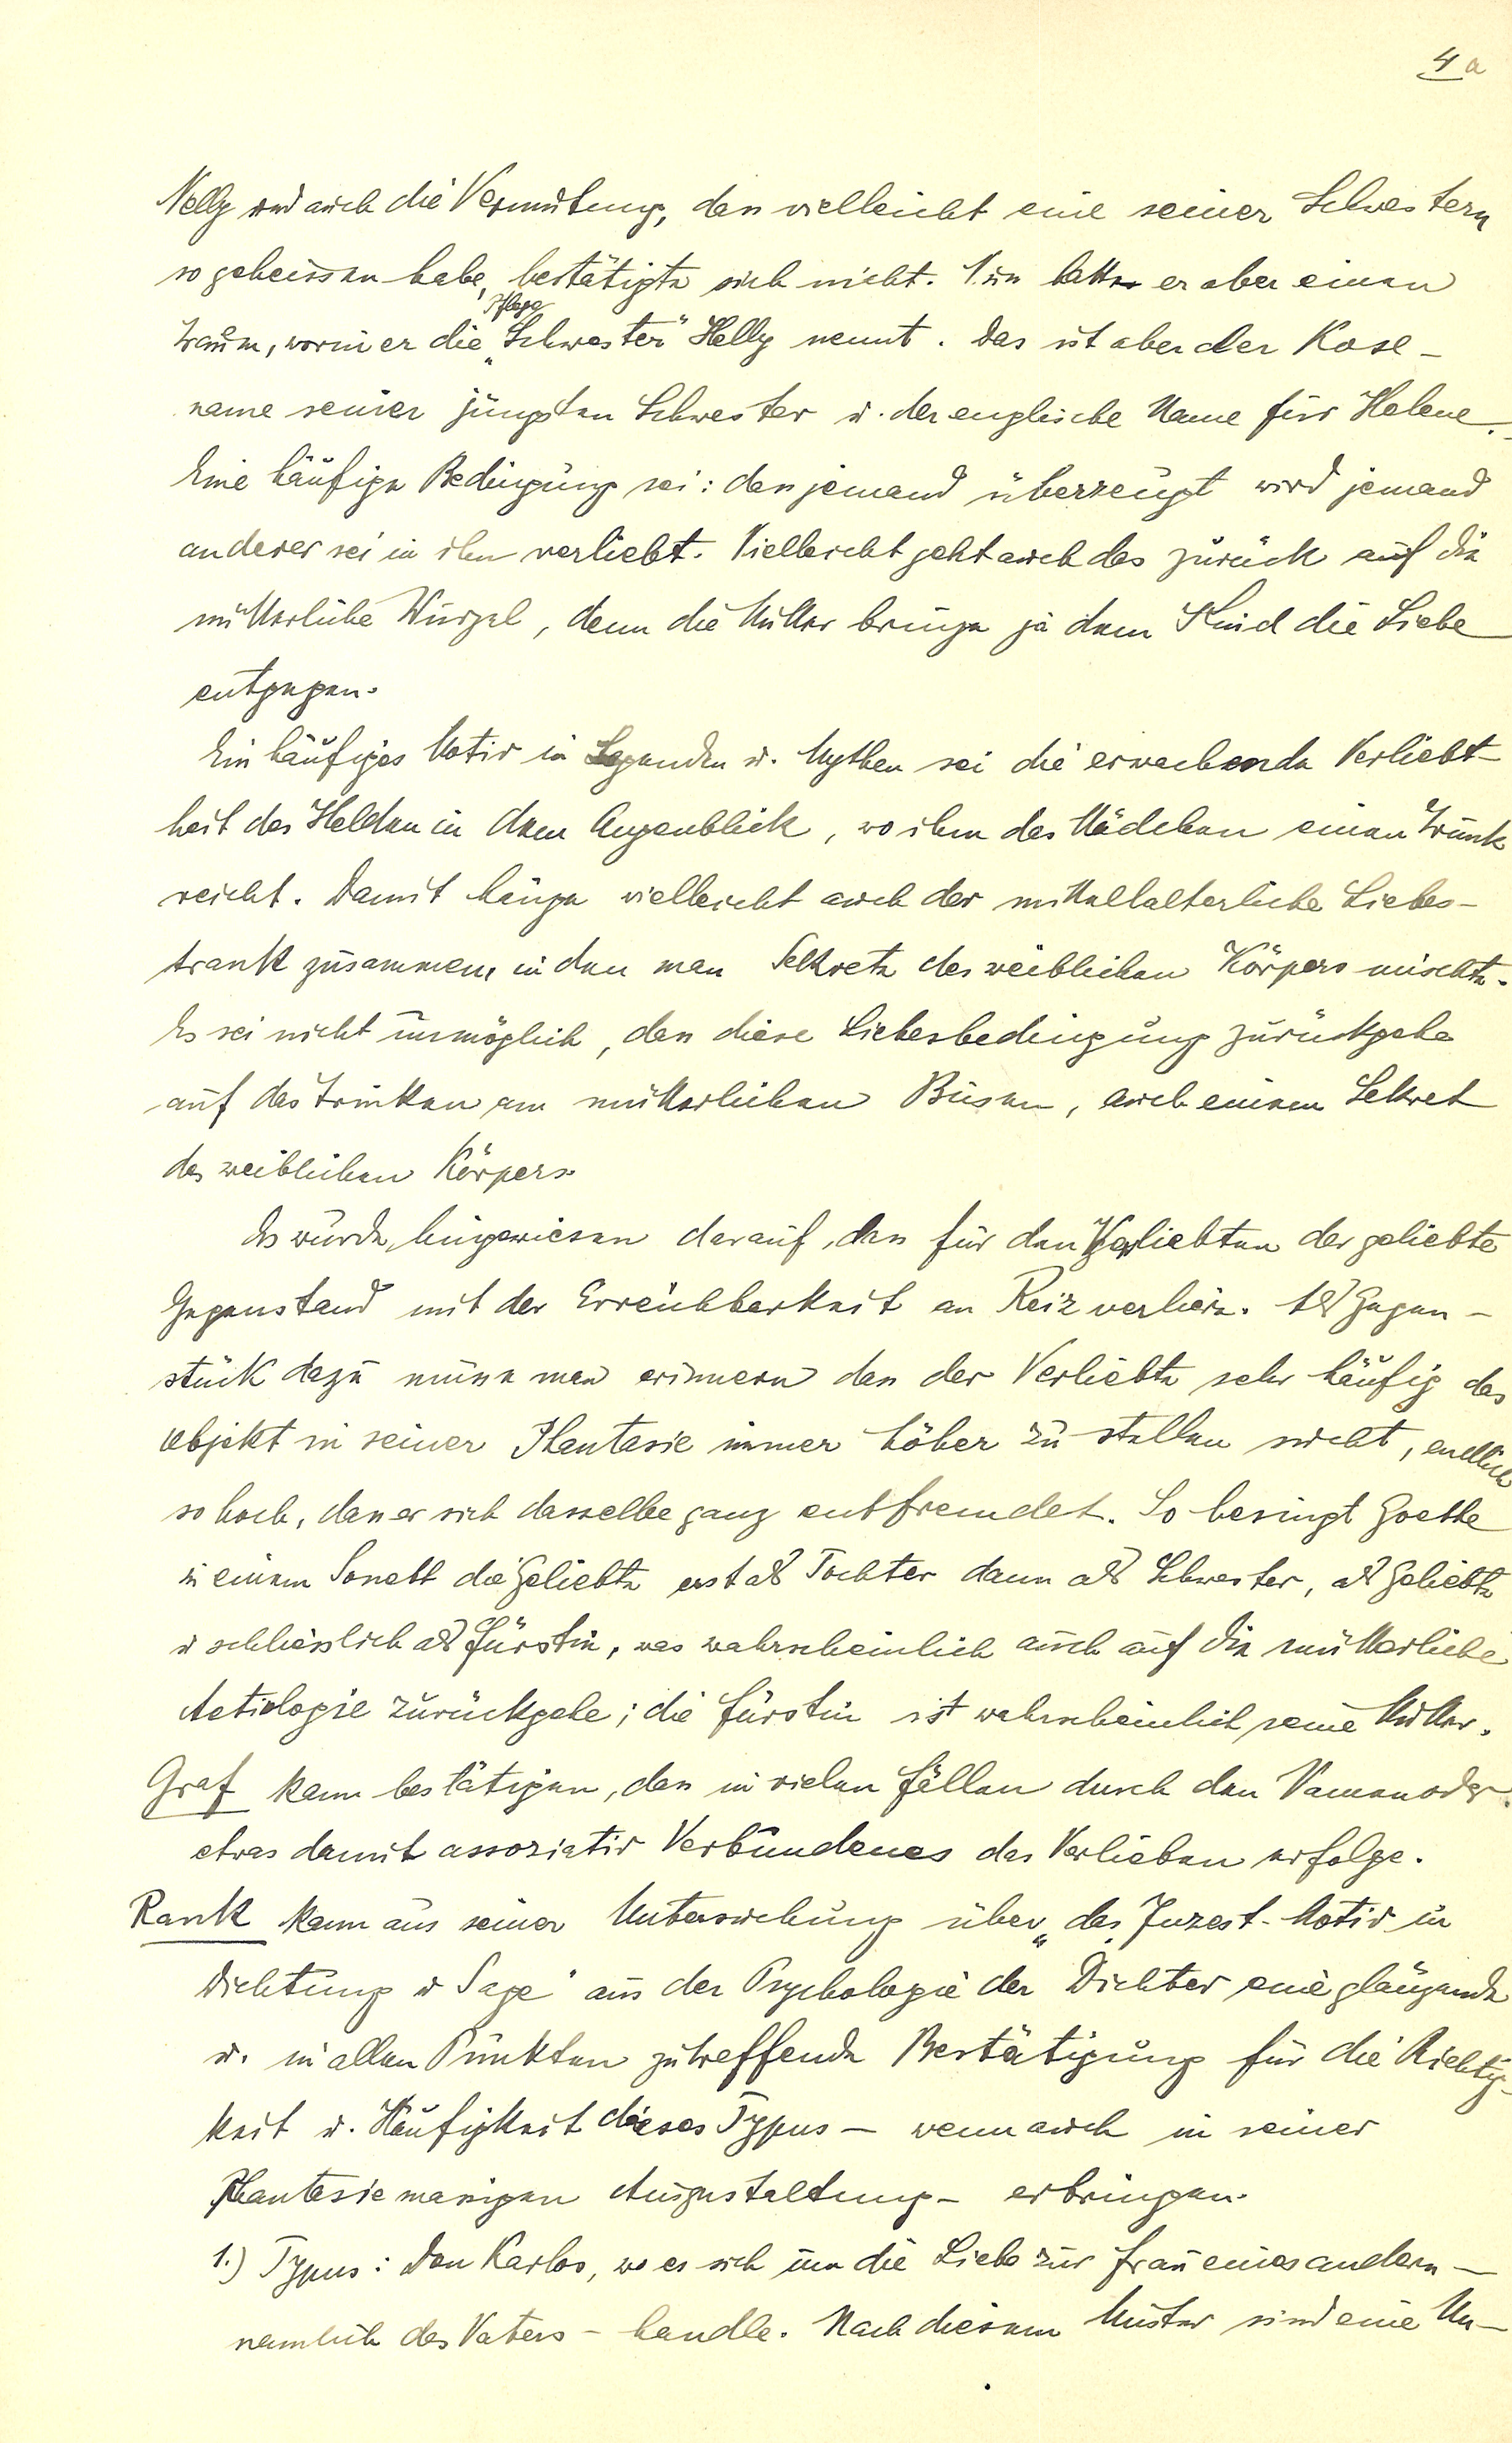 4a
Nelly und auch die Vermutung, dass vielleicht eine seiner Schwestern
so geheissen habe, bestätigte sich nicht. Nun hatte er aber einen
Pflege
Traum, worin er die „Schwester" Helly nennt. Das ist aber der Kose-
name seiner jüngsten Schwester u. der englische Name für Helene.
Eine häufige Bedingung sei: dass jemand überzeugt wird jemand
anderer sei in ihn verliebt. Vielleicht geht auch das zurück auf die
mütterliche Wurzel, denn die Mutter bringe ja dem Kind die Liebe
entgegen.
Ein häufiges Motiv in Legenden u. Mythen sei die erwachende Verliebt-
heit des Helden in dem Augenblick, wo ihm das Mädchen einen Trunk
reicht. Damit hänge vielleicht auch der mittelalterliche Liebes-
trank zusammen, in den man Sekrete des weiblichen Körpers mischte.
Es sei nicht unmöglich, dass diese Liebesbedingung zurückgehe
auf das Trinken am mütterlichen Busen, auch einem Sekret
des weiblichen Körpers.
Es wurde hingewiesen darauf, dass für den Verliebten der geliebte
Gegenstand mit der Erreichbarkeit an Reiz verliere. Als Gegen-
stück dazu müsse man erinnern dass der Verliebte sehr häufig das
Objekt in seiner Phantasie immer höher zu stellen sucht, endlich
so hoch, dass er sich dasselbe ganz entfremdet. So besingt Goethe
in einem Sonett die Geliebte erst als Tochter dann als Schwester, als Geliebte
u schliesslich als Fürstin, was wahrscheinlich auch auf die mütterliche
Aetiologie zurückgehe; die Fürstin ist wahrscheinlich seine Mutter.
Graf kann bestätigen, dass in vielen Fällen durch den Namen oder
etwas damit assoziativ Verbundenes das Verlieben erfolge.
Rank kann aus seiner Untersuchung über „das Inzest-Motiv in
Dichtung u Sage" aus der Psychologie der Dichter eine glänzende
u. in allen Punkten zutreffende Bestätigung für die Richtig-
keit u. Häufigkeit dieses Typus – wenn auch in seiner
phantasiemässigen Ausgestaltung – erbringen.
1.) Typus: Don Karlos, wo es sich um die Liebe zur Frau eines andern –
nämlich des Vaters – handle. Nach diesem Muster sind eine Un-